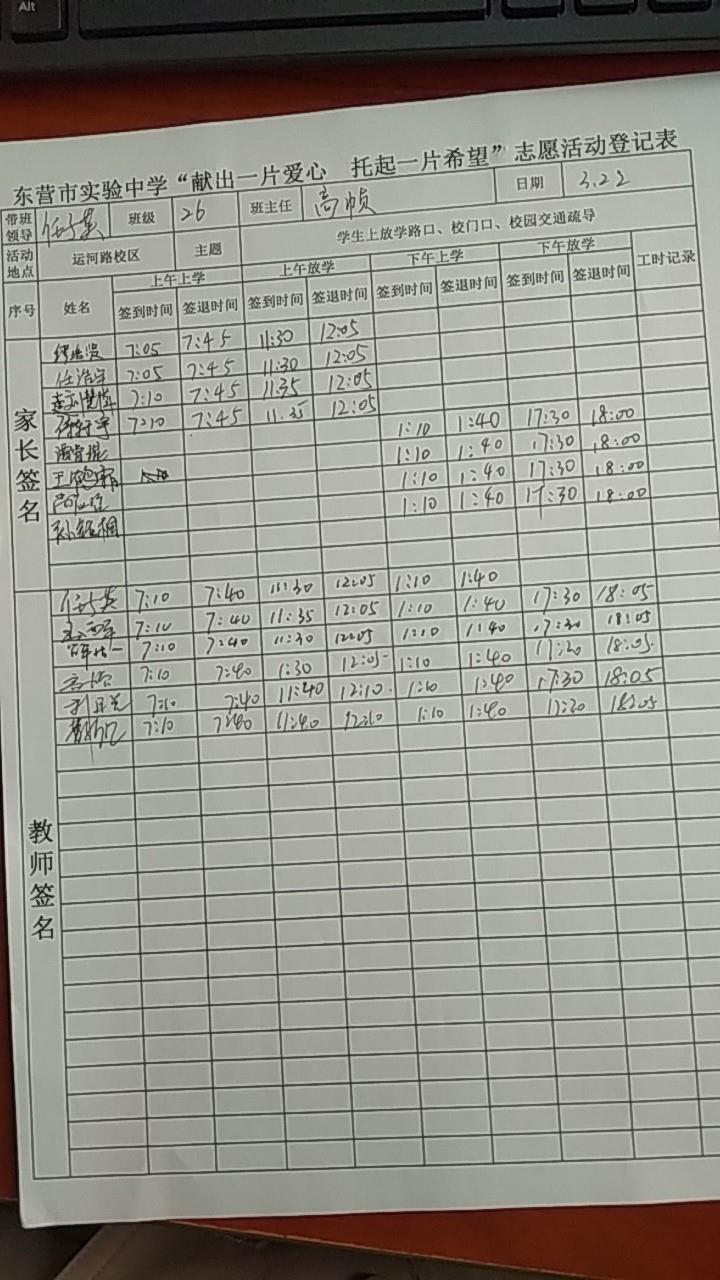 Alt
东营市实验中学“献出一片爱心 托起一片希望”志愿活动登记表
带班领导 班级 26 班主任 高帧 日期 3.22
活动地点 运河路校区 主题 学生上放学路口、校门口、校园交通疏导
序号 姓名 上午上学 上午放学 下午上学 下午放学 工时记录
签到时间 签退时间 签到时间 签退时间 签到时间 签退时间 签到时间 签退时间
家长签名
7:05 7:45 11:30 12:05
任浩宇 7:05 7:45 11:30 12:05
7:10 7:45 11:35 12:05
7:10 7:45 11:35 12:05
1:10 1:40 17:30 18:00
王鹤霏 1:10 1:40 17:30 18:00
1:10 1:40 17:30 18:00
1:10 1:40 17:30 18:00
教师签名
7:10 7:40 11:30 12:05 1:10 1:40
7:10 7:40 11:35 12:05 1:10 1:40 17:30 18:05
7:10 7:40 11:30 12:05 1:10 1:40 17:30 18:05
7:10 7:40 1:30 12:05 1:10 1:40 17:20 18:05
7:10 7:40 11:40 12:10 1:10 1:40 17:30 18:05
7:10 7:40 11:40 12:10 1:10 1:40 17:20 18:05